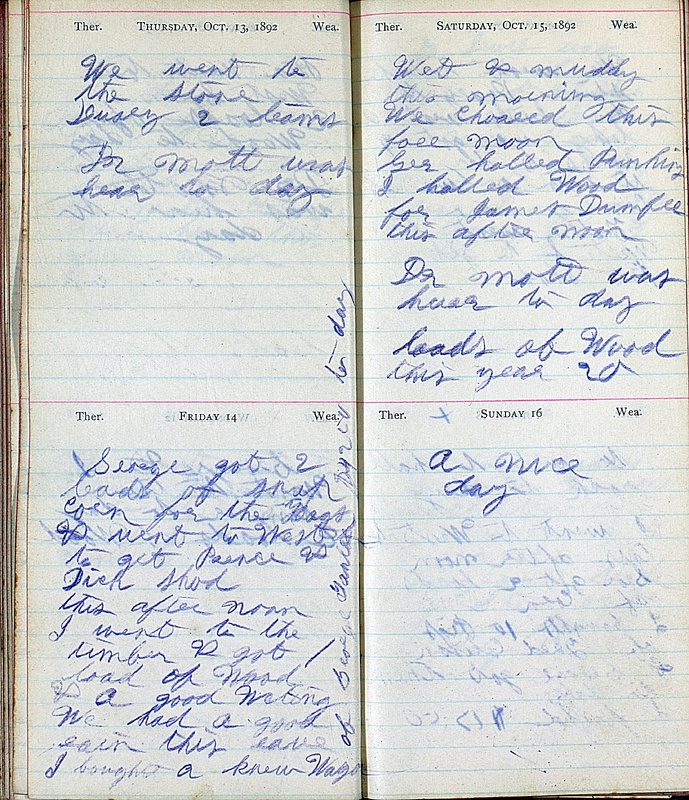 Ther. THURSDAY, OCT. 13, 1892 Wea.
We went to
the stone
2 teams
Dr mott was
hear to day
Ther. FRIDAY 14 Wea.
George got 2
loads of snap
corn for the Hogs
& went to West
to get Peerce &
Dick shod
this after noon
I went to the
timber & got 1
load of Wood
& a good Weting
We had a good
rain this eave
I bought a knew Wago
of George to day
Ther. SATURDAY, OCT. 15, 1892 Wea.
Wet & muddy
this morning
We choared this
fore moon
Geo halled Punkin
I halled Wood
for James
this after noon
Dr mott was
hear to day
loads of Wood
this year 20
Ther. SUNDAY 16 Wea.
A nice
day